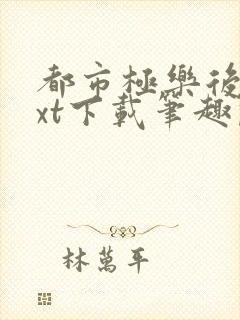 都市極樂後
xt下載筆趣
林萬平